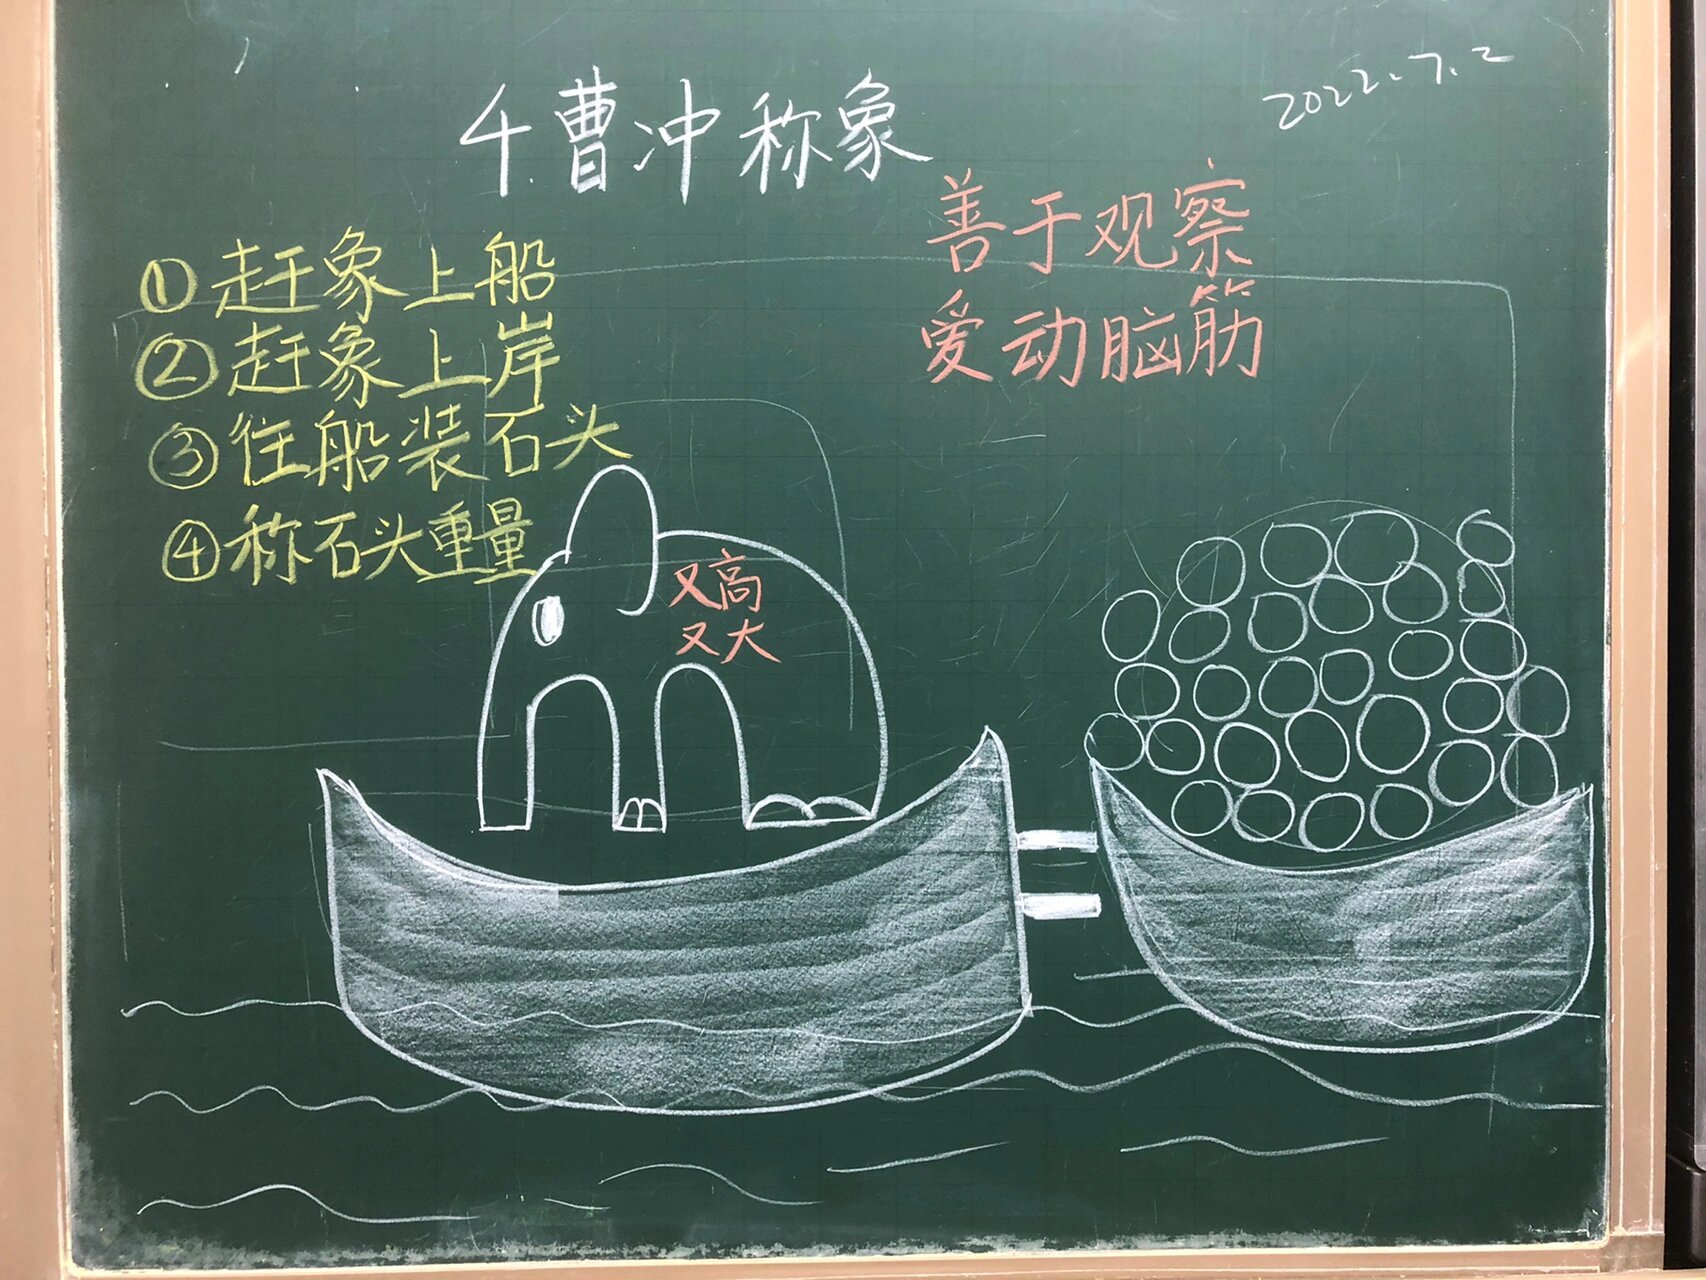 4.曹冲称象
2022.7.2
善于观察
爱动脑筋
①赶象上船
②赶象上岸
③往船装石头
④称石头重量
又高
又大